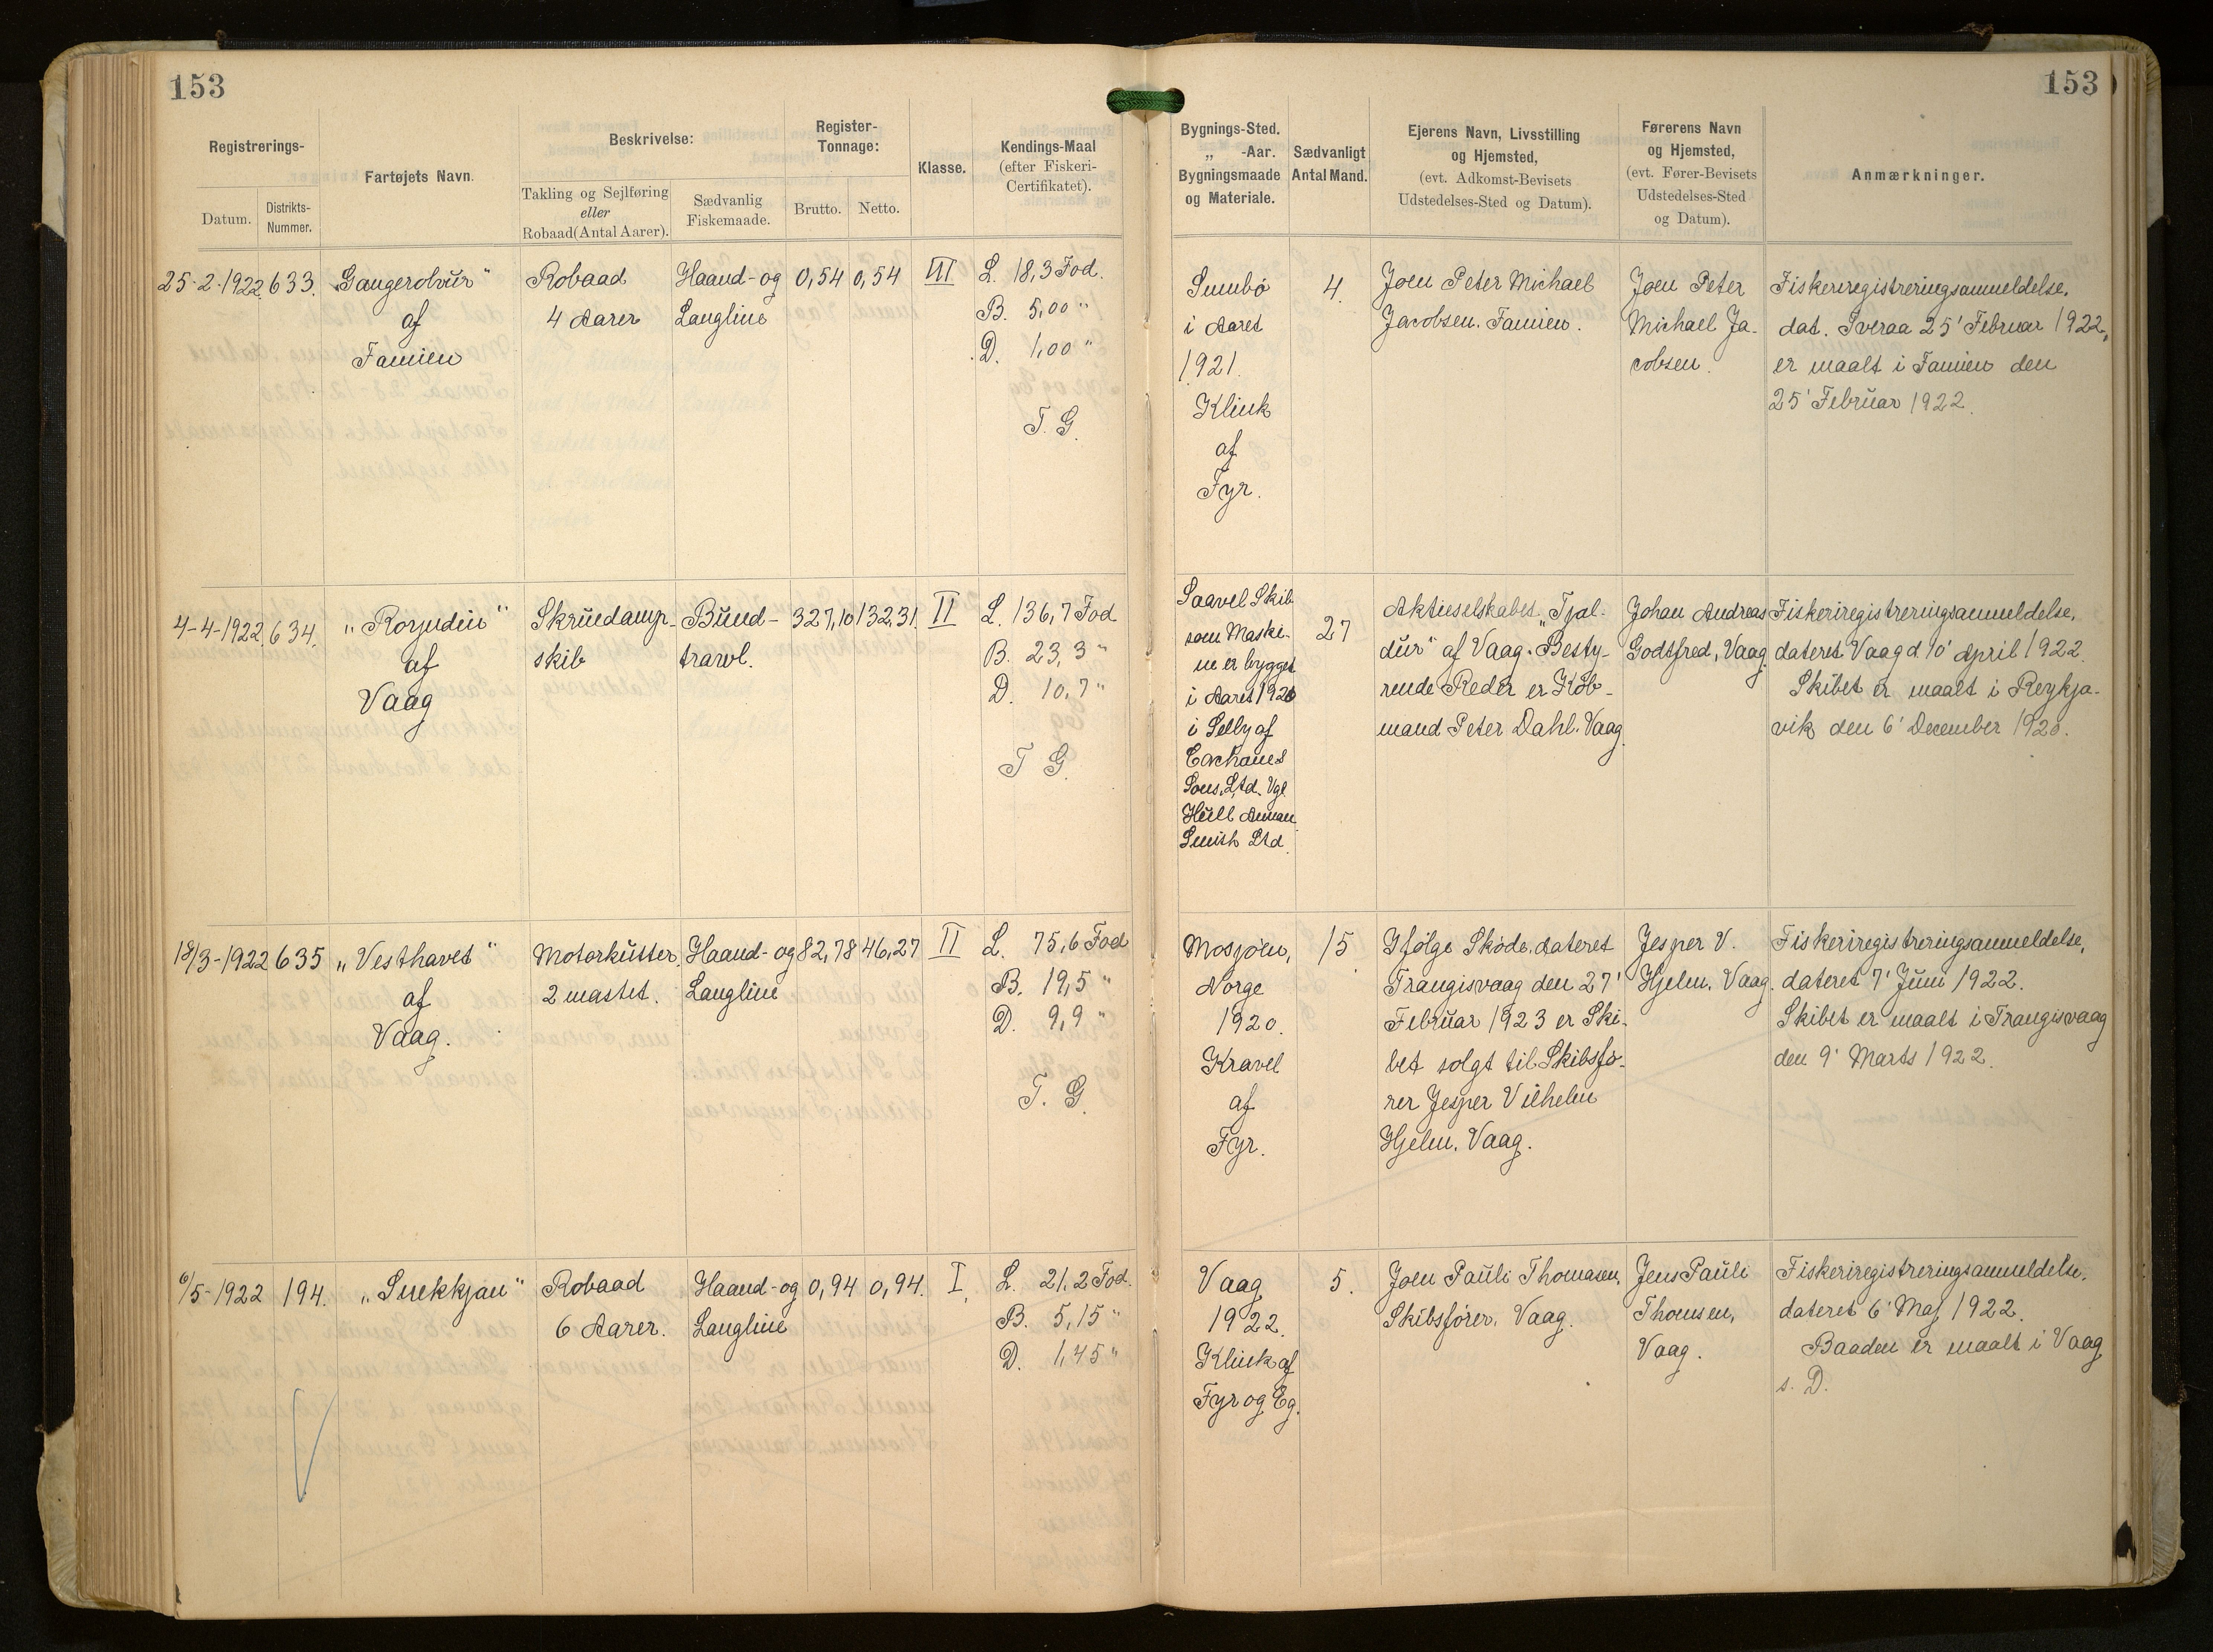 153
153
Registrerings-
Datum.
Distrikts-
Nummer.
Fartøjets Navn.
Beskrivelse:
Takling og Sejlføring
eller
Robaad (Antal Aarer).
Sædvanlig
Fiskemaade.
Register-
Tonnage:
Brutto.
Netto.
Klasse.
Kendings-Maal
(efter Fiskeri-
Certifikatet).
Bygnings-Sted.
„ -Aar.
Bygningsmaade
og Materiale.
Sædvanligt
Antal Mand.
Ejerens Navn, Livsstilling
og Hjemsted,
(evt. Adkomst-Bevisets
Udstedelses-Sted og Datum).
Førerens Navn
og Hjemsted,
(evt. Fører-Bevisets
Udstedelses-Sted
og Datum).
Anmærkninger.
25-2-1922.
633.
„Gangerolvur"
af
Famien
Robaad
4 Aarer
Haand- og
Langline
0,54
0,54
III
L. 18,3 Fod.
B. 5,00 "
D. 1,00 "
T. G.
Sumbø
i Aaret
1921.
Klink
af
Fyr.
4.
Joen Peter Michael
Jacobsen. Famien.
Joen Peter
Michael Ja-
cobsen.
Fiskeriregistreringsanmeldelse,
dat. Tveraa 25' Februar 1922,
er maalt i Famien den
25' Februar 1922.
4-4-1922.
634.
„Royndin"
af
Vaag
Skruedamp-
skib
Bund-
trawl.
327,10
132,31.
II
L. 136,7 Fod
B. 23,3 "
D. 10,7 "
T G.
Saavel Skib
som Maski-
ne er bygget
i Aaret 1920
i Selby af
Cochanes
Sons, Ltd. Vgl.
Hull Aman
Smith Ltd.
27
Aktieselskabet „Tjal-
dur" af Vaag. Besty-
rende Reder er Køb-
mand Peter Dahl. Vaag.
Johan Andreas
Godtfred, Vaag.
Fiskeriregistreringsanmeldelse,
dateret Vaag d 10' April 1922.
Skibet er maalt i Reykja-
vik den 6' December 1920.
18/3-1922
635
„Vesthavet"
af
Vaag.
Motorkutter,
2 mastet.
Haand- og
Langline
82,78
46,27
II
L. 75,6 Fod
B. 19,5 "
D. 9,9 "
T. G.
Mosjøen,
Norge
1920.
Kravel
af
Fyr.
15.
Ifølge Skøde, dateret
Trangisvaag den 27'
Februar 1923 er Ski-
bet solgt til Skibsfø-
rer Jesper Vilhelm
Hjelm, Vaag.
Jesper V.
Hjelm, Vaag.
Fiskeriregistreringsanmeldelse,
dateret 7' Juni 1922.
Skibet er maalt i Trangisvaag
den 9' Marts 1922.
6/5-1922
194.
„Snekkjan"
Robaad
6 Aarer.
Haand- og
Langline
0,94
0,94.
I.
L. 21,2 Fod.
B. 5,15 "
D. 1,45 "
Vaag
1922.
Klink af
Fyr og Eg.
5.
Joen Pauli Thomasen,
Skibsfører, Vaag.
Jens Pauli
Thomsen,
Vaag.
Fiskeriregistreringsanmeldelse,
dateret 6' Maj 1922.
Baaden er maalt i Vaag
s. D.